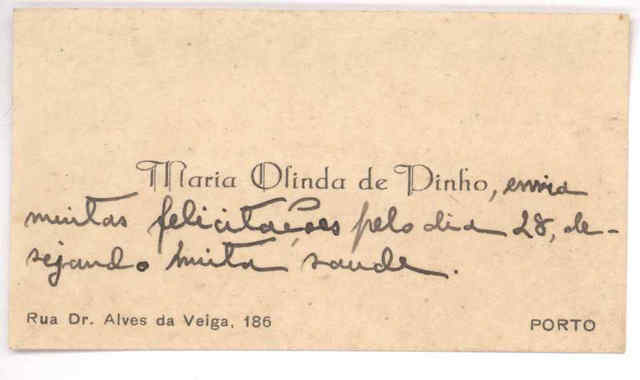 Maria Olinda de Pinho, envia
muitas felicitações pelo dia 28, de-
sejando muita saude.
Rua Dr. Alves da Veiga, 186
PORTO